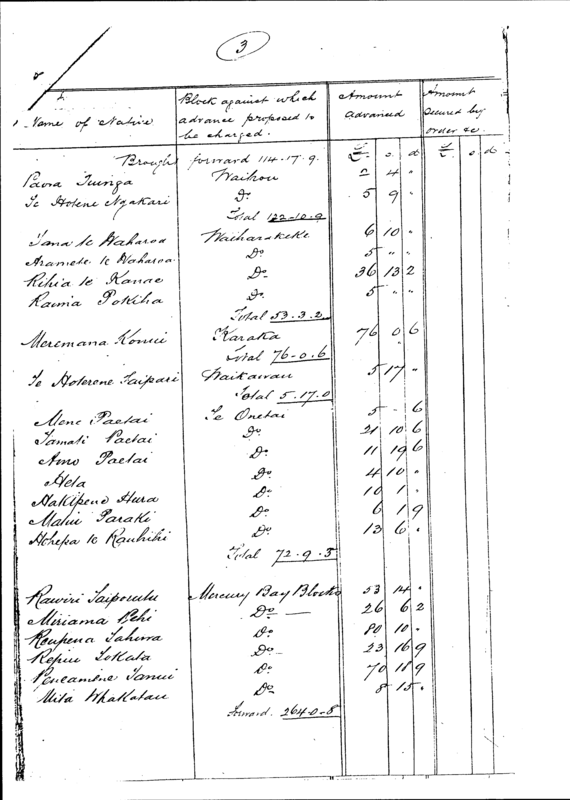 3
Name of Native | Block against which advance proposed to be charged. | Amount advanced | Amount secured by order &c.
Brough forward 114.17.9 | £ s d | £ s d
Paora Tuinga | Waihou | 2 4 "
Te Hotene Ngakari | Do | 5 9 "
Total 122-10-9
Tana te Waharoa | Waiharakeke | 6 10 "
Aramete te Waharoa | Do | 5 " "
Rihia te Kanae | Do | 36 13 2
Raima Pokiha | Do | 5 " "
Total 53.3.2
Meremana Konui | Karaka | 76 0 6
Total 76-0.6
Te Hoterene Taipari | Waikawau | 5 17 "
Total 5.17.0
Mene Paetai | Te Onetai | 5 - 6
Tamati Paetai | Do | 21 10 6
Amo Paetai | Do | 11 19 6
Heta | Do | 4 10 "
Hakipene Hura | Do | 10 1 "
Mahu Paraki | Do | 6 1 9
Hohepa te Rauhihi | Do | 13 6 "
Total 72.9.3
Rawiri | Mercury Bay Blocks | 53 14 "
Miriama Pehi | Do | 26 6 2
Reupena Tahura | Do | 80 10 "
Repiu Tokata | Do | 23 16 9
Tanui | Do | 70 18 9
Mita Whakatau | Do | 8 15 "
Forward. 264-0-8